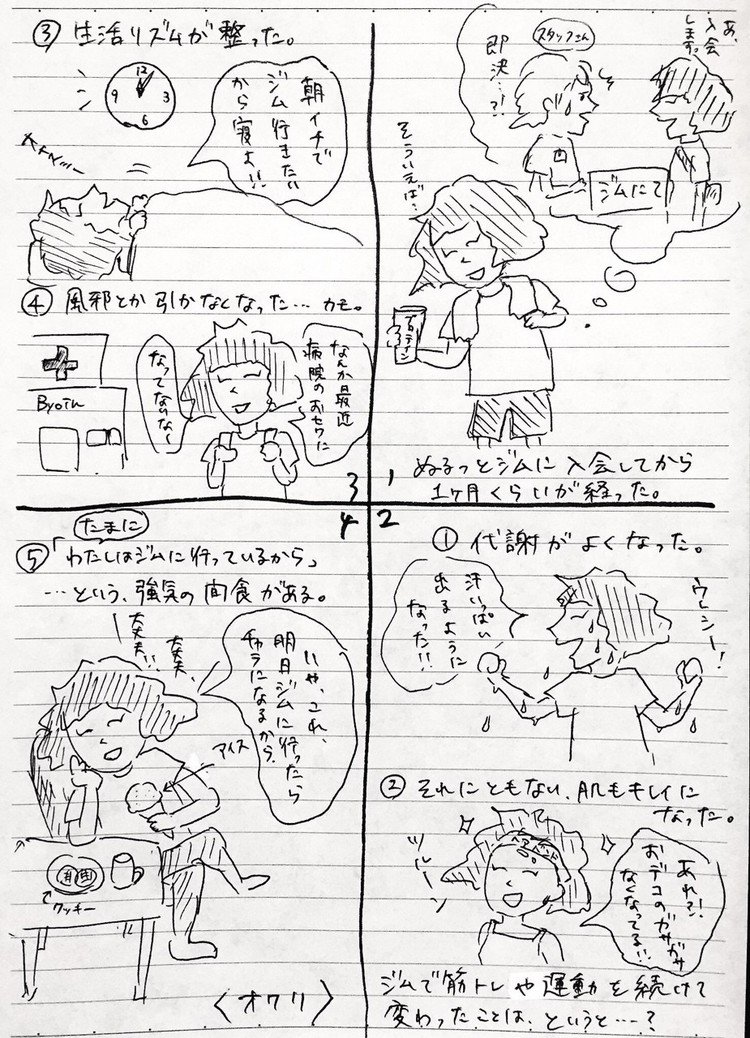 あ、
入会
します。
スタッフさん
即決…?!
ジムにて
そういえば、
プロテイン
ぬるっとジムに入会してから
1ヶ月くらいが経った。
1
2
① 代謝がよくなった。
汗いっぱい
出るように
なった!!
ウレシー!
② それにともない、肌もキレイに
なった。
ヘアバンド
ツルーン
あれ?!
おデコのガサガサ
なくなってる!!
ジムで筋トレや運動を続けて
変わったことは、というと……?
③ 生活リズムが整った。
12
9
3
6
朝イチで
ジム行きたい
から寝よ!!
④ 風邪とか引かなくなった… カモ。
Byoin
なんか最近
病院のおセワに
なってないな〜
3
4
たまに
⑤「わたしはジムに行っているから」
…という、強気の間食がある。
大丈夫、
大丈夫!!
いや、これ、
明日ジムに行ったら
チャラになるから。
アイス
クッキー
〈オワリ〉